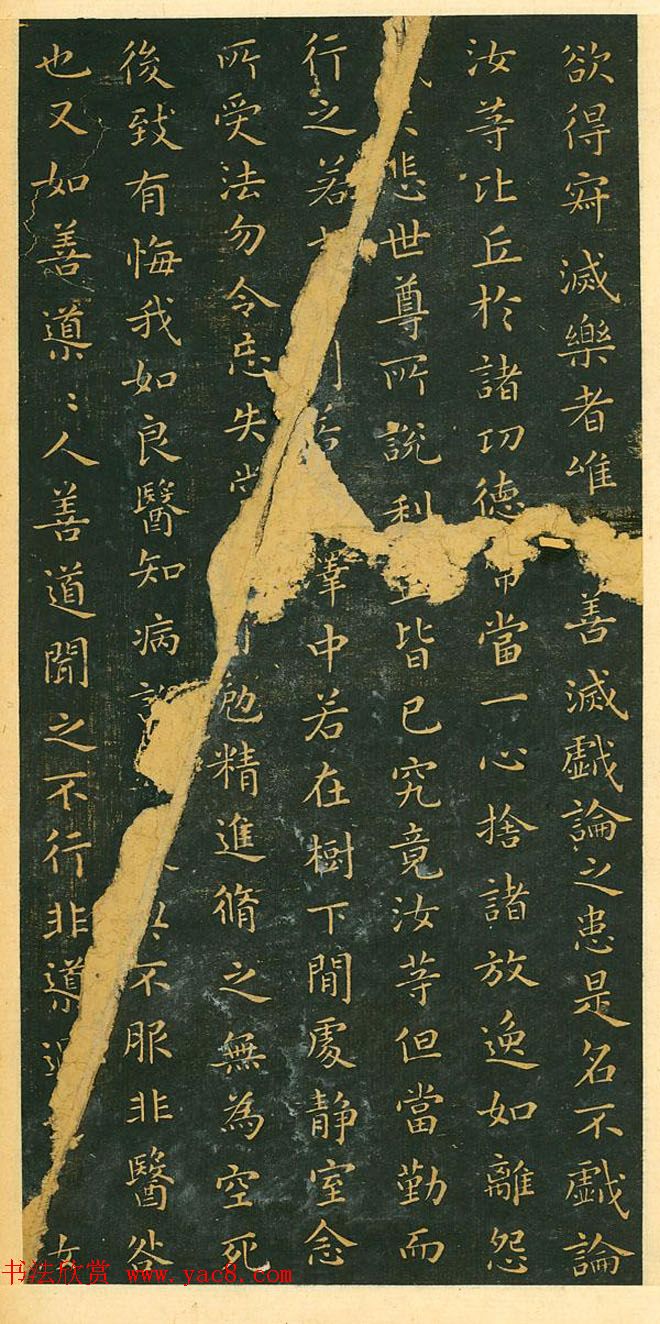 欲得寂滅樂者唯善滅戲論之患是名不戲論
汝等比丘於諸功德常當一心捨諸放逸如離怨
悲世尊所說利皆已究竟汝等但當勤而
行之若若中若在樹下閒處静室念
所受法勿令忘失常勉精進脩之無為空死
後致有悔我如良醫知病不服非醫咎
也又如善導〻人善道聞之不行非導過
书法欣赏 www.yac8.com